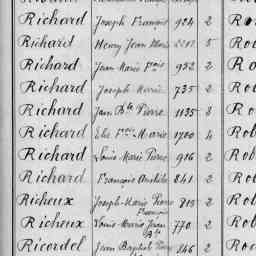 Richard Joseph François 924 2 Ro
Richard Henry Jean Marie 5 Ro
Richard Jean Marie Fois 952 2 Ro
Richard Joseph Marie 735 2 Ro
Richard Jean Bte Pierre 1135 3 Ro
Richard Marie 1700 4 Rob
Richard Louis Marie Pierre 916 2 Rob
Richard François 841 2 Rob
Richeux Joseph Marie Pierre 915 2 Rob
François
Richeux Louis Marie Jean 770 2 Rob
Bte
Ricordel Jean Baptiste 846 2 Roc